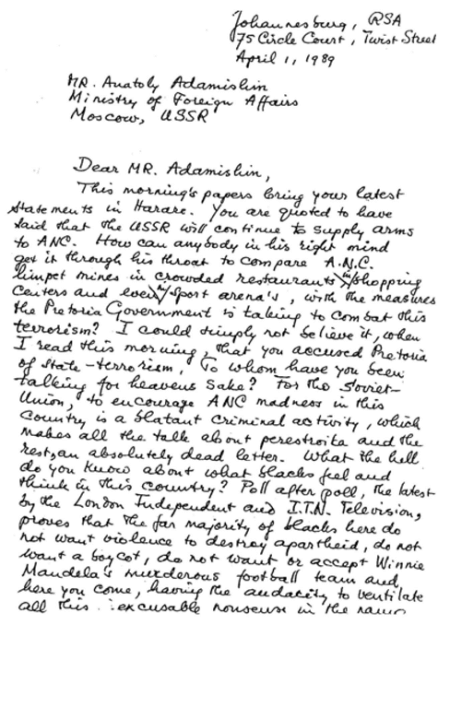 Johannesburg, RSA
75 Circle Court, Twist Street
April 1, 1989
MR. Anatoly Adamishin
Ministry of Foreign Affairs
Moscow, USSR
Dear MR. Adamishin,
This morning's papers bring your latest
statements in Harare. You are quoted to have
said that the USSR will continue to supply arms
to ANC. How can anybody in his right mind
get it through his throat to compare A.N.C.
limpet mines in crowded restaurants, in shopping
centers and even in sport arena's, with the measures
the Pretoria Government is taking to combat this
terrorism? I could simply not believe it, when
I read this morning, that you accused Pretoria
of state-terrorism. To whom have you been
talking for heavens sake? For the Soviet-
Union, to encourage ANC madness in this
country is a blatant criminal activity, which
makes all the talk about perestroika and the
rest, an absolutely dead letter. What the hell
do you know about what blacks feel and
think in this country? Poll after poll, the latest
by the London Independent and I.T.N. Television,
proves that the far majority of blacks here do
not want violence to destroy apartheid, do not
want a boycot, do not want or accept Winnie
Mandela's murderous football team and
here you come, having the audacity to ventilate
all this nonsense in the name